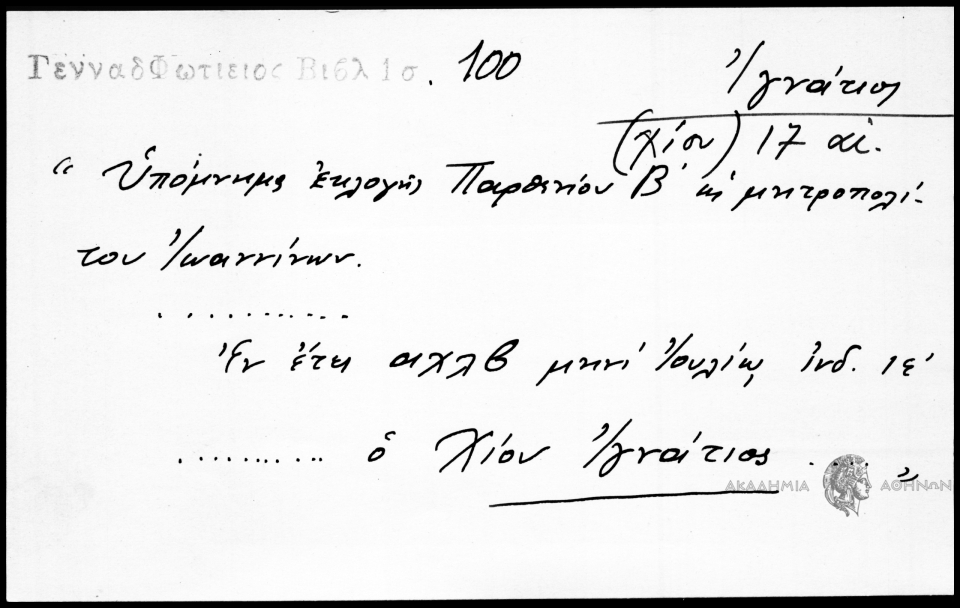 ΓενναδΦωτιειος Βιβλ 1σ. 100
Ἰγνάτιος
(Χίου) 17 αἰ.
“Ὑπόμνημα ἐκλογῆς Παρθενίου Β΄ ὡς μητροπολί-
του Ἰωαννίνων.
...........
Ἐν ἔτει αχλβ μηνὶ Ἰουλίῳ ἰνδ. ιε΄
.......... ὁ Χίου Ἰγνάτιος ...”
ΑΚΑΔΗΜΙΑ ΑΘΗΝΩΝ